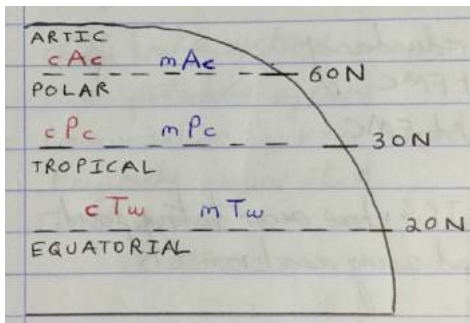 ARTIC
cAc mAc
60N
POLAR
cPc mPc
30N
TROPICAL
cTw mTw
20N
EQUATORIAL